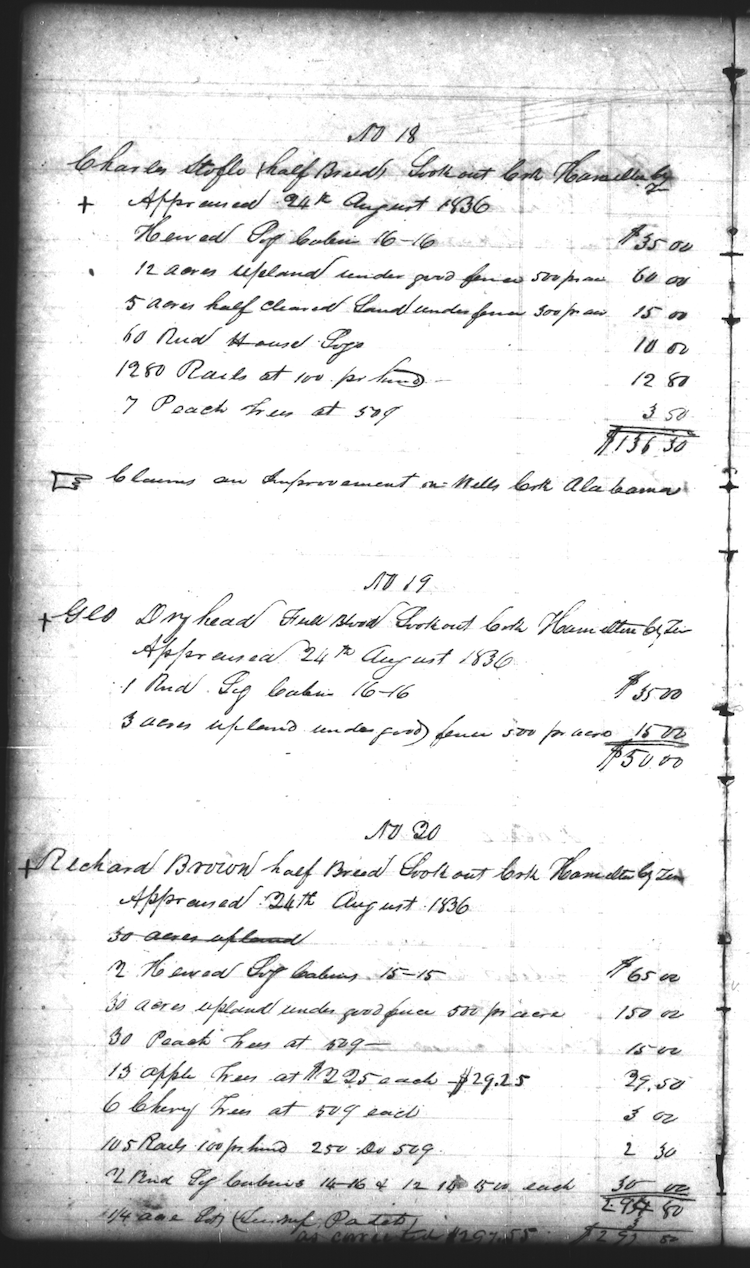 No 18
Charles (half Breed) Lookout Crk Hamilton Cy
Ten
+ Appraised 24th August 1836
Hewed Log Cabin 16-16 $35 00
12 acres upland under good fence 500 pr ac 60 00
5 acres half cleared Land under fence 300 pr ac 15 00
60 Rud House Logs 10 00
1280 Rails at 100 pr hund 12 80
7 Peach Trees at 50¢ 3 50
$136 30
Claims an Improvement on Wills Crk Alabama
No 19
+ Geo Dryhead Full Blood Lookout Crk Hamilton Cy Ten
Appraised 24th August 1836
1 Rnd Log Cabin 16-16 $35 00
3 acres upland under good fence 500 pr acre 15 00
$50.00
No 20
+ Richard Brown half Breed Lookout Crk Hamilton Cy Ten
Appraised 24th August 1836
30 acres upland
2 Hewed Log Cabins 15-15 $65 00
30 acres upland under good fence 500 pr acre 150 00
30 Peach Trees at 50¢ 15 00
13 apple Trees at $2 25 each $29.25 29.50
6 Chery Trees at 50¢ each 3 00
105 Rails 100 pr hund 250 Do 50¢ 2 30
2 Rnd Log Cabins 14-16 & 12 14 15 00 each 30 00
80
1/4 acre Lot
as corrected $297.55